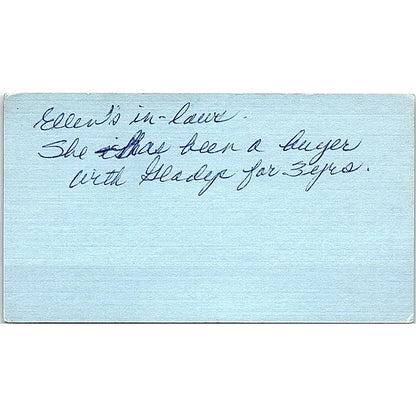 Ellen's in-laws.
She has been a buyer
with Gladys for 3 yrs.